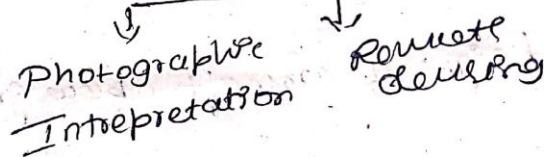 Photographic
Intrepretation
Remote
Sensing